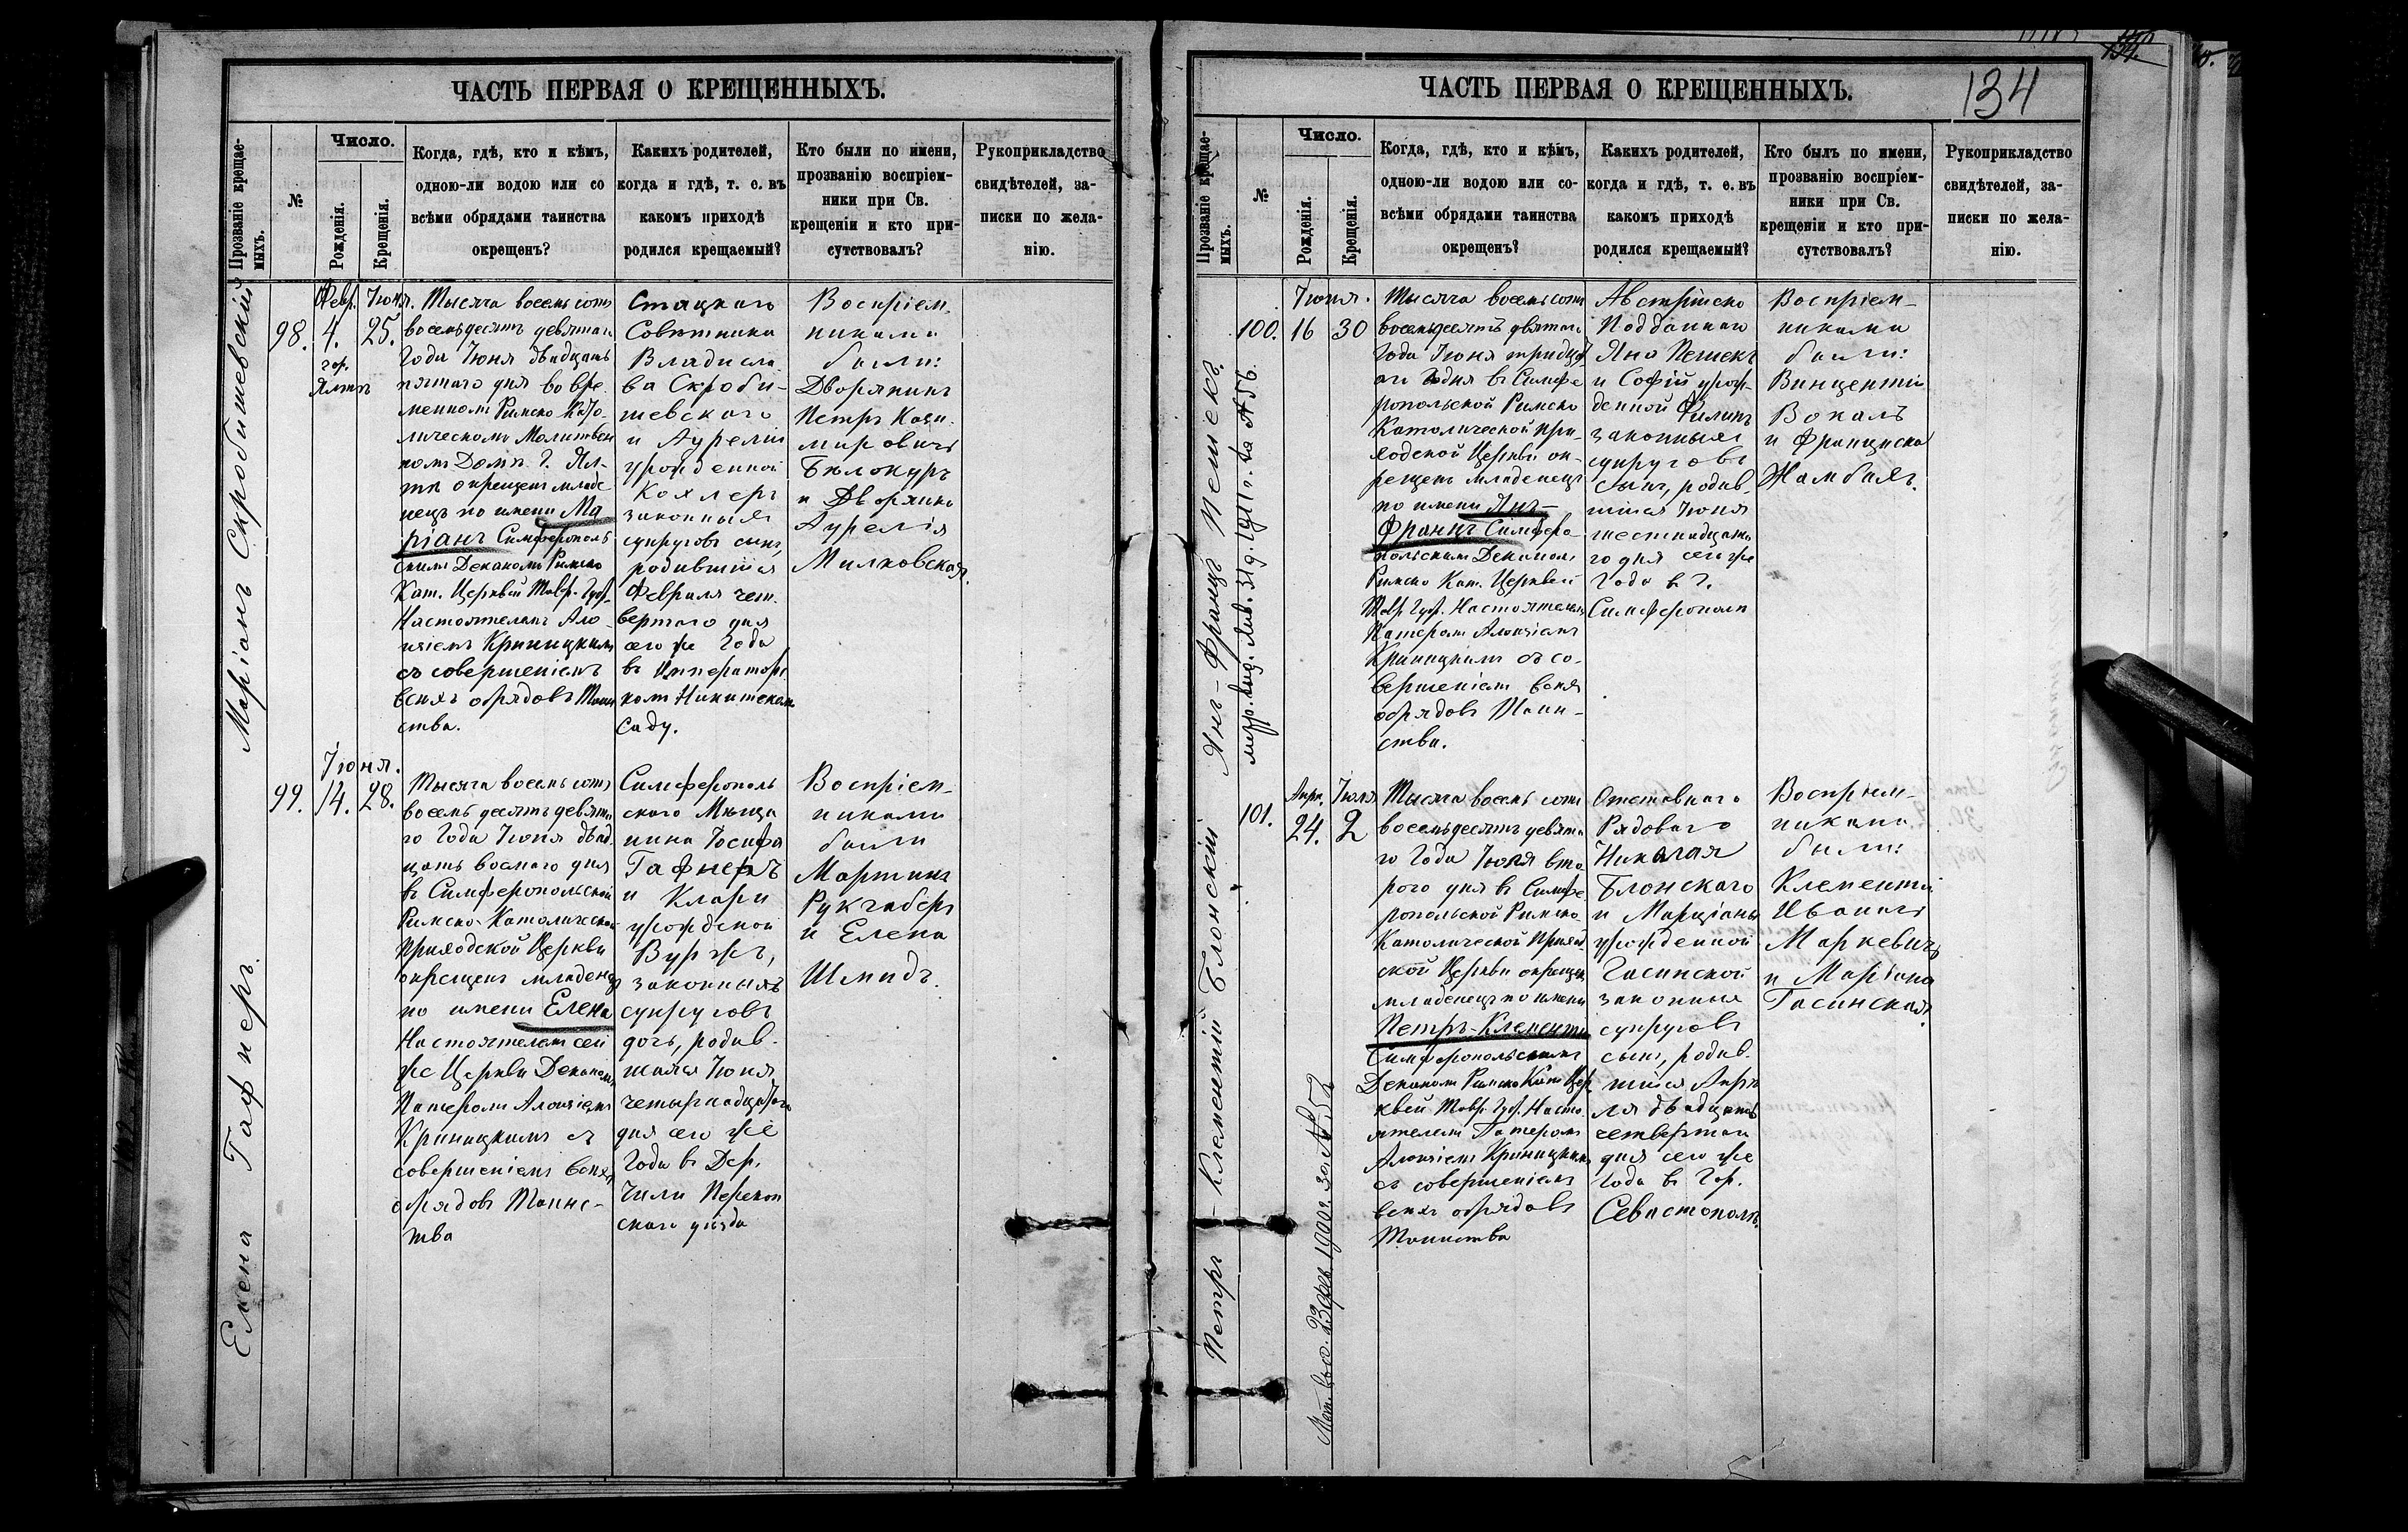 ЧАСТЬ ПЕРВАЯ О КРЕЩЕННЫХЪ.
Прозваніе крещае-
мыхъ.
№
Число.
Рожденія.
Крещенія.
Когда, гдѣ, кто и кѣмъ,
одною-ли водою или со
всѣми обрядами таинства
окрещенъ?
Какихъ родителей,
когда и гдѣ, т. е. въ
какомъ приходѣ
родился крещаемый?
Кто были по имени,
прозванію воспріем-
ники при Св.
крещеніи и кто при-
сутствовалъ?
Рукоприкладство
свидѣтелей, за-
писки по жела-
нію.
Маріанъ Скробишевскій
98.
Февр.
4.
гор.
Ялтѣ
Іюня.
25.
Тысяча восемь сотъ
восемьдесятъ девятаго
Года Іюня двадцать
пятаго дня во вре
менномъ Римско Като-
лическомъ Молитвен
номъ Домѣ Г. Ял-
тѣ окрещенъ младе
нецъ по имени Ма
ріанъ Симферополь
скимъ Деканомъ Римско
Кат. Церквей Тавр. Губ.
Настоятелемъ Ало-
изіемъ Криницкимъ
съ совершеніемъ
всѣхъ обрядовъ Таин
ства.
Статскаго
Совѣтника
Владисла
ва Скроби-
шевскаго
и Ауреліи
урожденной
Кохлеръ
законныхъ
супруговъ сынъ,
родившійся
Февраля чет.
вертаго дня
сего же Года
въ Императорс
комъ Никитскомъ
Саду.
Воспріем-
никами
были:
Дворянинъ
Петръ Кази-
мировичъ
Бѣлокуръ
и Дворянка
Аурелія
Милковская.
Елена Гафнеръ.
99.
Іюня.
14.
28.
Тысяча восемь сотъ
восемь десятъ девята
го Года Іюня двад
цать восмаго дня
въ Симферопольской
Римско-Католической
Приходской Церкви
окрещенъ младенецъ
по имени Елена
Настоятелемъ сей
же Церкви Деканомъ
Патеромъ Алоизіемъ
Криницкимъ съ
совершеніемъ всѣхъ
обрядовъ Таинс-
тва
Симферополь
скаго Мѣща
нина Іосифа
Гафнеръ
и Клары
урожденной
Вуржъ,
законныхъ
супруговъ
дочь, родив-
шаяся Іюня
четырнадцатаго
дня сего же
Года въ Дер.
Чили Перекоп
скаго уѣзда
Воспріем-
никами
были
Мартинъ
Рукгаберъ
и Елена
Шмидъ.
ЧАСТЬ ПЕРВАЯ О КРЕЩЕННЫХЪ.
134
Прозваніе крещае-
мыхъ.
№
Число.
Рожденія.
Крещенія.
Когда, гдѣ, кто и кѣмъ,
одною-ли водою или со-
всѣми обрядами таинства
окрещенъ?
Какихъ родителей,
когда и гдѣ, т. е. въ
какомъ приходѣ
родился крещаемый?
Кто былъ по имени,
прозванію воспріем-
ники при Св.
крещеніи и кто при-
сутствовалъ?
Рукоприкладство
свидѣтелей, за-
писки по жела-
нію.
Янъ-Францъ Пешекъ.
метр. выд. Янв. 31д. 1911 г. за №56.
100.
Іюня.
16
30
Тысяча восемь сотъ
восемьдесятъ девятаго
Года Іюня тридца
аго дня въ Симфе
ропольской Римско
Католической При-
ходской Церкви ок-
рещенъ младенецъ
по имени Янъ-
Францъ Симферо-
польскимъ Деканомъ
Римско Кат. Церквей
Тавр. Губ. Настоятелемъ
Патеромъ Алоизіемъ
Криницкимъ съ со-
вершеніемъ всѣхъ
обрядовъ Таин-
ства.
Австрійско
Подданнаго
Яна Пешекъ
и Софіи урож-
денной Филипъ
законныхъ
супруговъ
сынъ, родив-
шійся Іюня
шестнадцата
го дня сего же
Года въ Г.
Симферополѣ
Воспріем-
никами
были:
Винцентій
Вокалъ
и Франциска
Жамбахъ.
Петръ-Клементій Блонскій
Мет. выд. 23 фев 1900г. за №52
101.
Апр.
24.
Іюля
2
Тысяча восемь сотъ
восемьдесятъ девята
го Года Іюля вто
рого дня въ Симфе
ропольской Римско
Католической Приход
ской Церкви окрещенъ
младенецъ по имени
Петръ-Клементій
Симферопольскимъ
Деканомъ Римско Кат Цер
квей Тавр. Губ. Насто
ятелемъ Патеромъ
Алоизіемъ Криницкимъ
съ совершеніемъ
всѣхъ обрядовъ
Таинства
Отставнаго
Рядоваго
Николая
Блонскаго
и Марціаны
урожденной
Гасинской
законныхъ
супруговъ
сынъ, родив-
шійся Апрѣ
ля двадцать
четвертаго
дня сего же
Года въ Гор.
Севастополѣ.
Воспріем-
никами
были:
Клементій
Ивановъ
Маркевичъ
и Маріана
Гасинская.